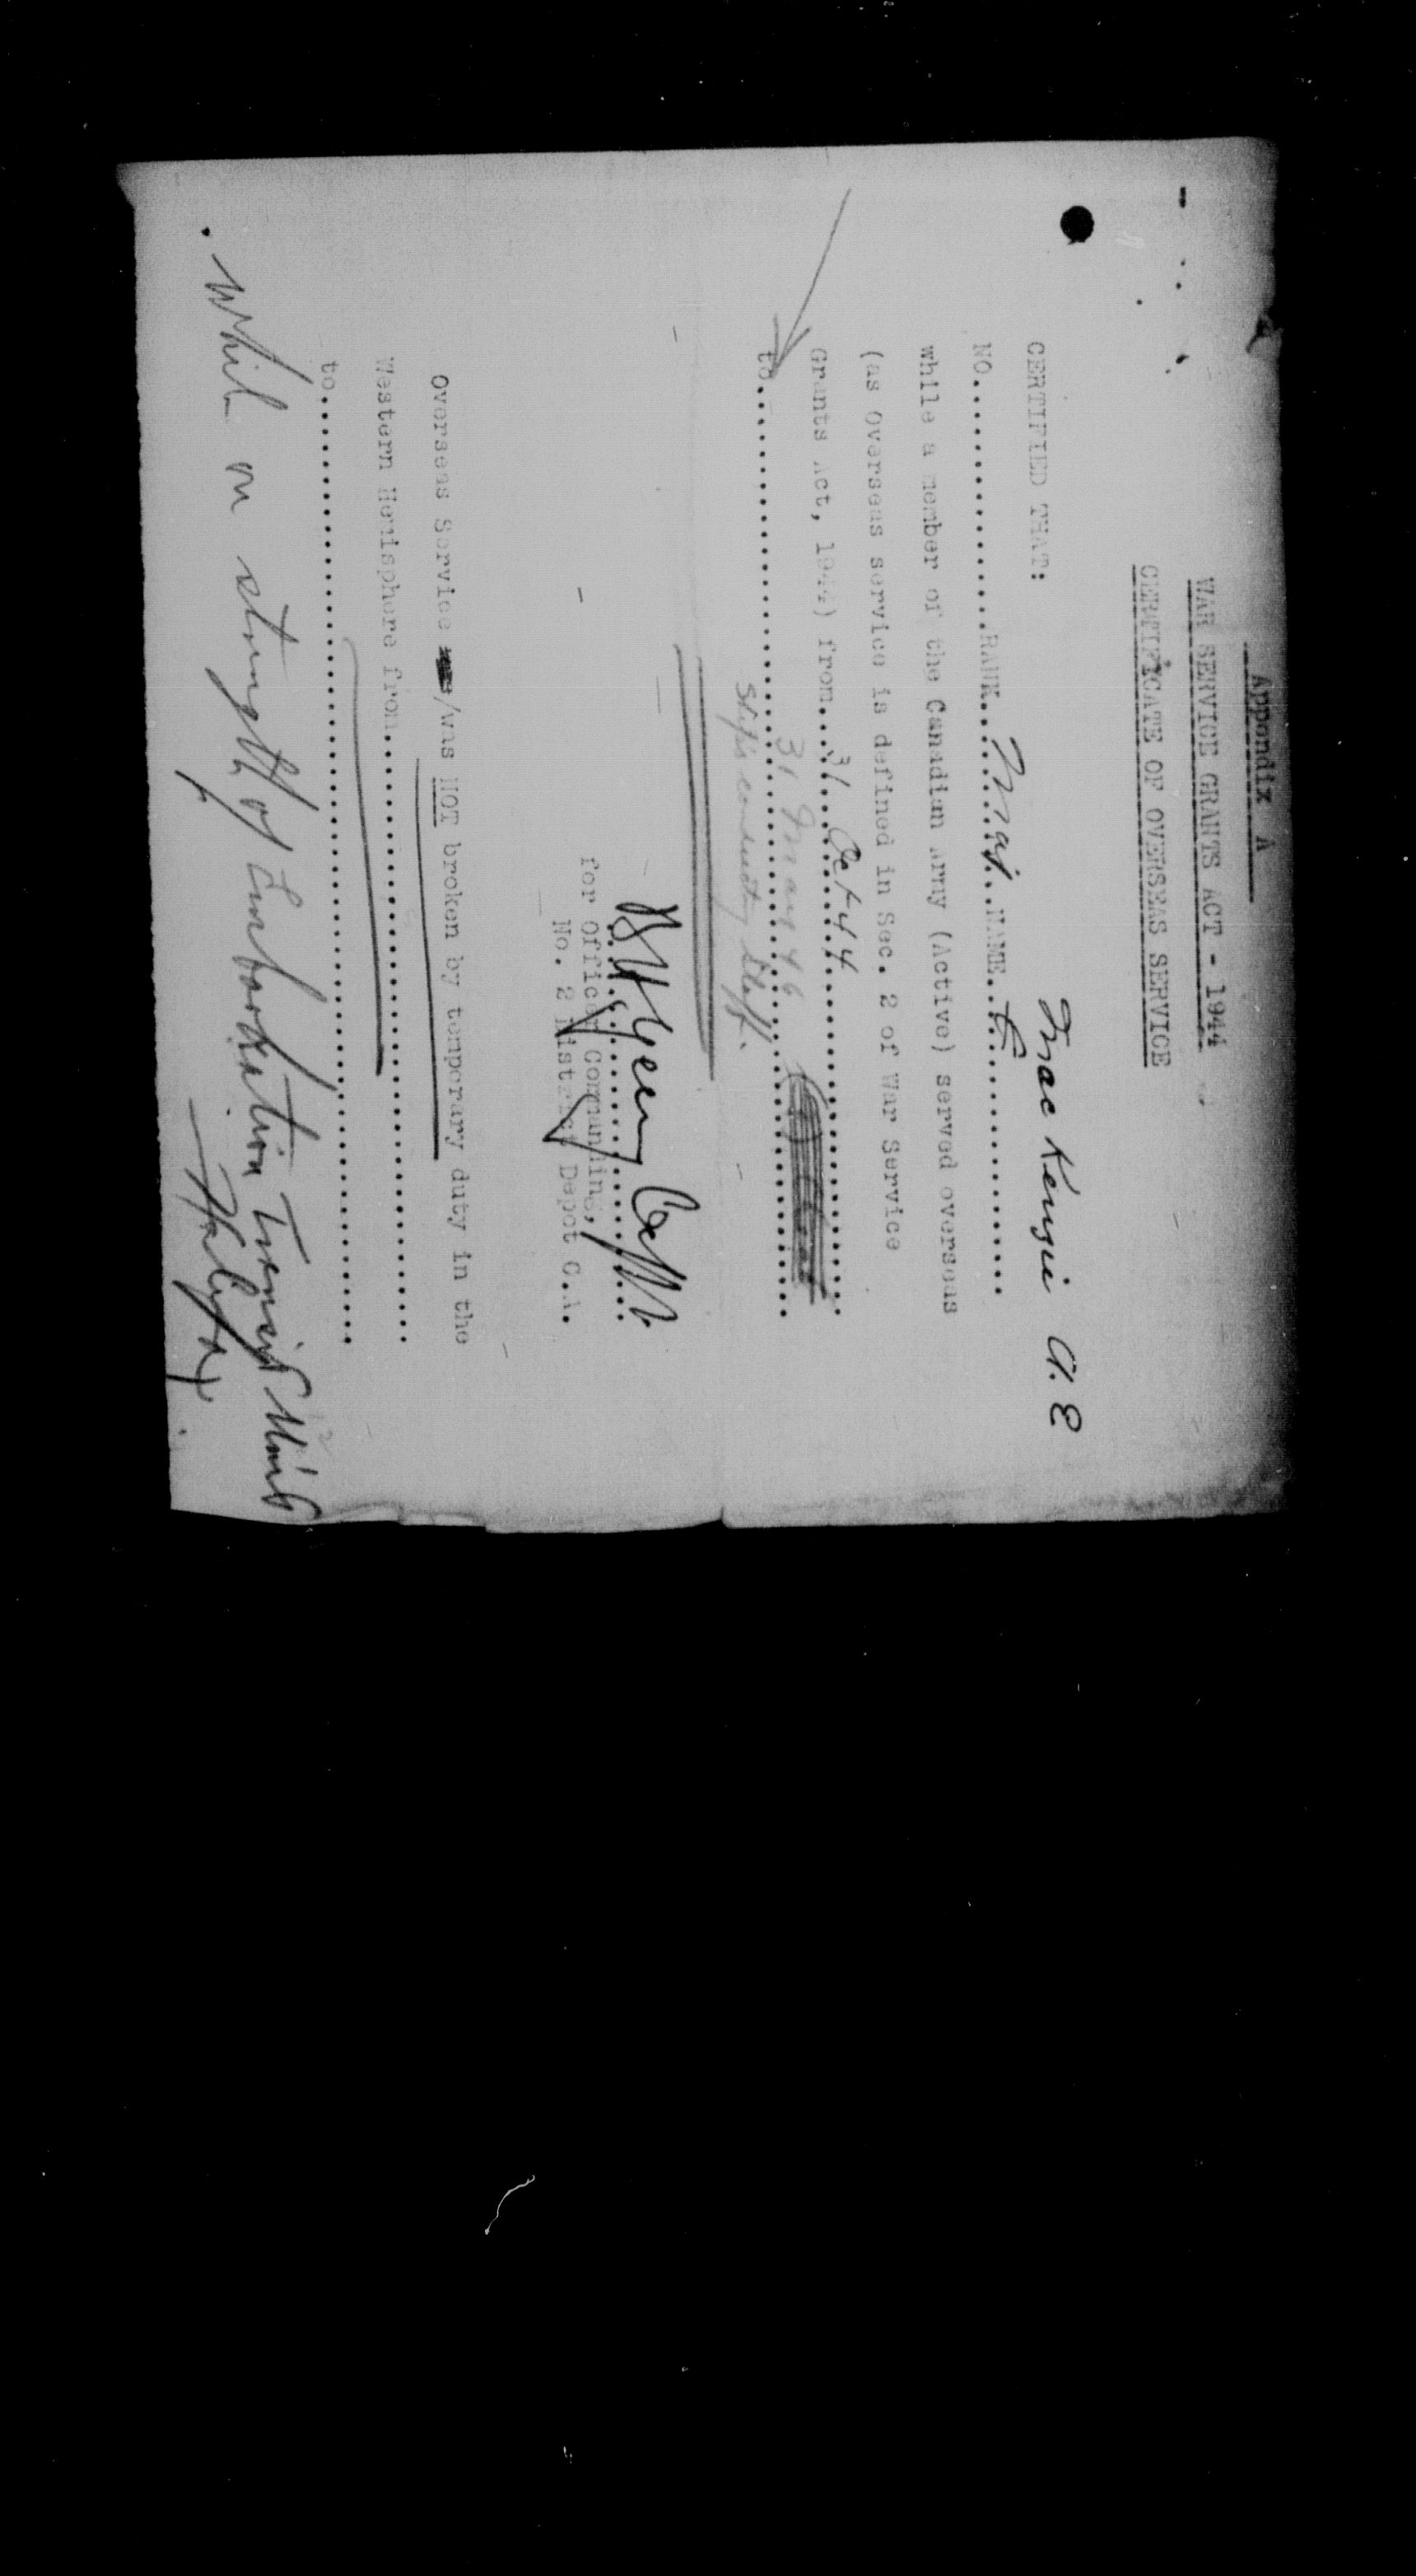 Appendix A
WAR SERVICE GRANTS ACT - 1944
CERTIFICATE OF OVERSEAS SERVICE
CERTIFIED THAT:
Mac Kenzie A. E
NO..................RANK...Maj...NAME..................
while a member of the Canadian Army (Active) served overseas
(as Overseas service is defined in Sec. 2 of War Service
Grants Act, 1944) from...31 Oct 44..................
to..................31 Mar 46..................
Ships conducting Staff.
Capt
for Officer Commanding,
No. 2 District Depot C.A.
Overseas Service /was NOT broken by temporary duty in the
Western Hemisphere from..................
to..................
While on strength of Embarkation Transit Unit
Halifax